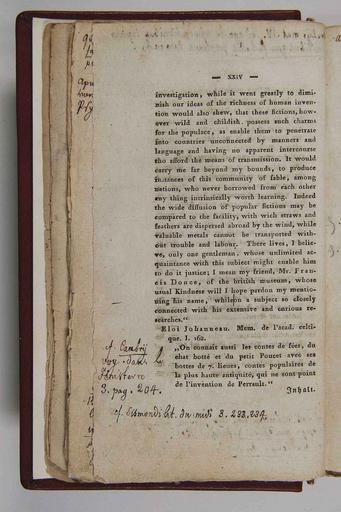 — XXIV —
investigation, while it went greatly to dimi-
nish our ideas of the richness of human inven-
tion would also shew, that these fictions, how-
ever wild and childish. possess such charms
for the populace, as enable them to penetrate
into countries unconnected by manners and
language and having no apparent intercourse
tho afford the means of transmission. It would
carry me far beyond my bounds, to produce
instances of this community of fable, among
nations, who never borrowed from each other
any thing intrinsically worth learning. Indeed
the wide diffusion of popular fictions may be
compared to the facility, with wich straws and
feathers are dispersed abroad by the wind, while
valuable metals cannot be transported with-
out trouble and labour. There lives, I belie-
ve, only one gentleman. whose unlimited ac-
quaintance with this subiect might enable him
to do it justice; I mean my friend, Mr. Fran-
cis Douce, of the british museum, whose
usual Kindness will I hope pardon my mentio-
ning his name, while on a subject so closely
connected with his extensive and carious re-
searches.“
Eloi Johanneau. Mem. de l'acad. celti-
que. I. 162.
„On connait aussi les contes de fées, du
chat botté et du petit Poucet avec ses
bottes de 7. lieues, contes populaires de
la plus haute antiquité, qui ne sont point
de l'invention de Perrault.“
Inhalt.
cf. Cambry
voy. dans le
Finisterre
3. pag. 204.
cf. Sismondi lit. du midi 3. 233.234.